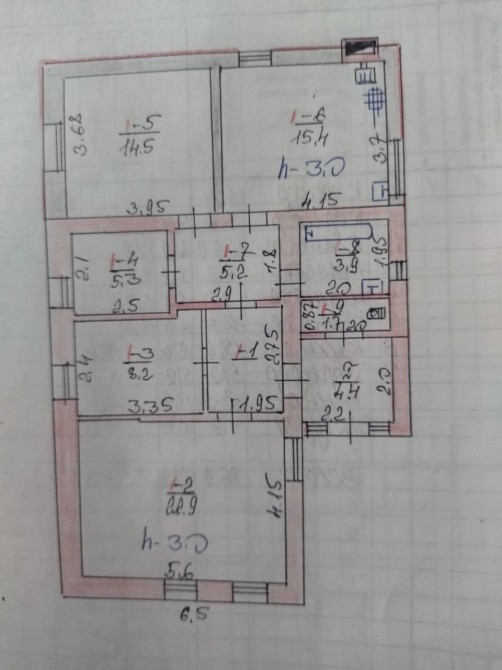 1-5
14.5
3.68
3.95
1-6
15.4
h-3.0
3.7
4.15
1-4
5.3
2.1
2.5
1-7
5.2
1.8
2.9
1-8
3.9
1.95
2.0
1-9
1.7
0.87
2.0
1-3
8.2
2.4
3.35
1-1
2.75
1.95
4.4
2.0
2.2
1-2
22.9
h-3.0
4.15
5.6
6.5